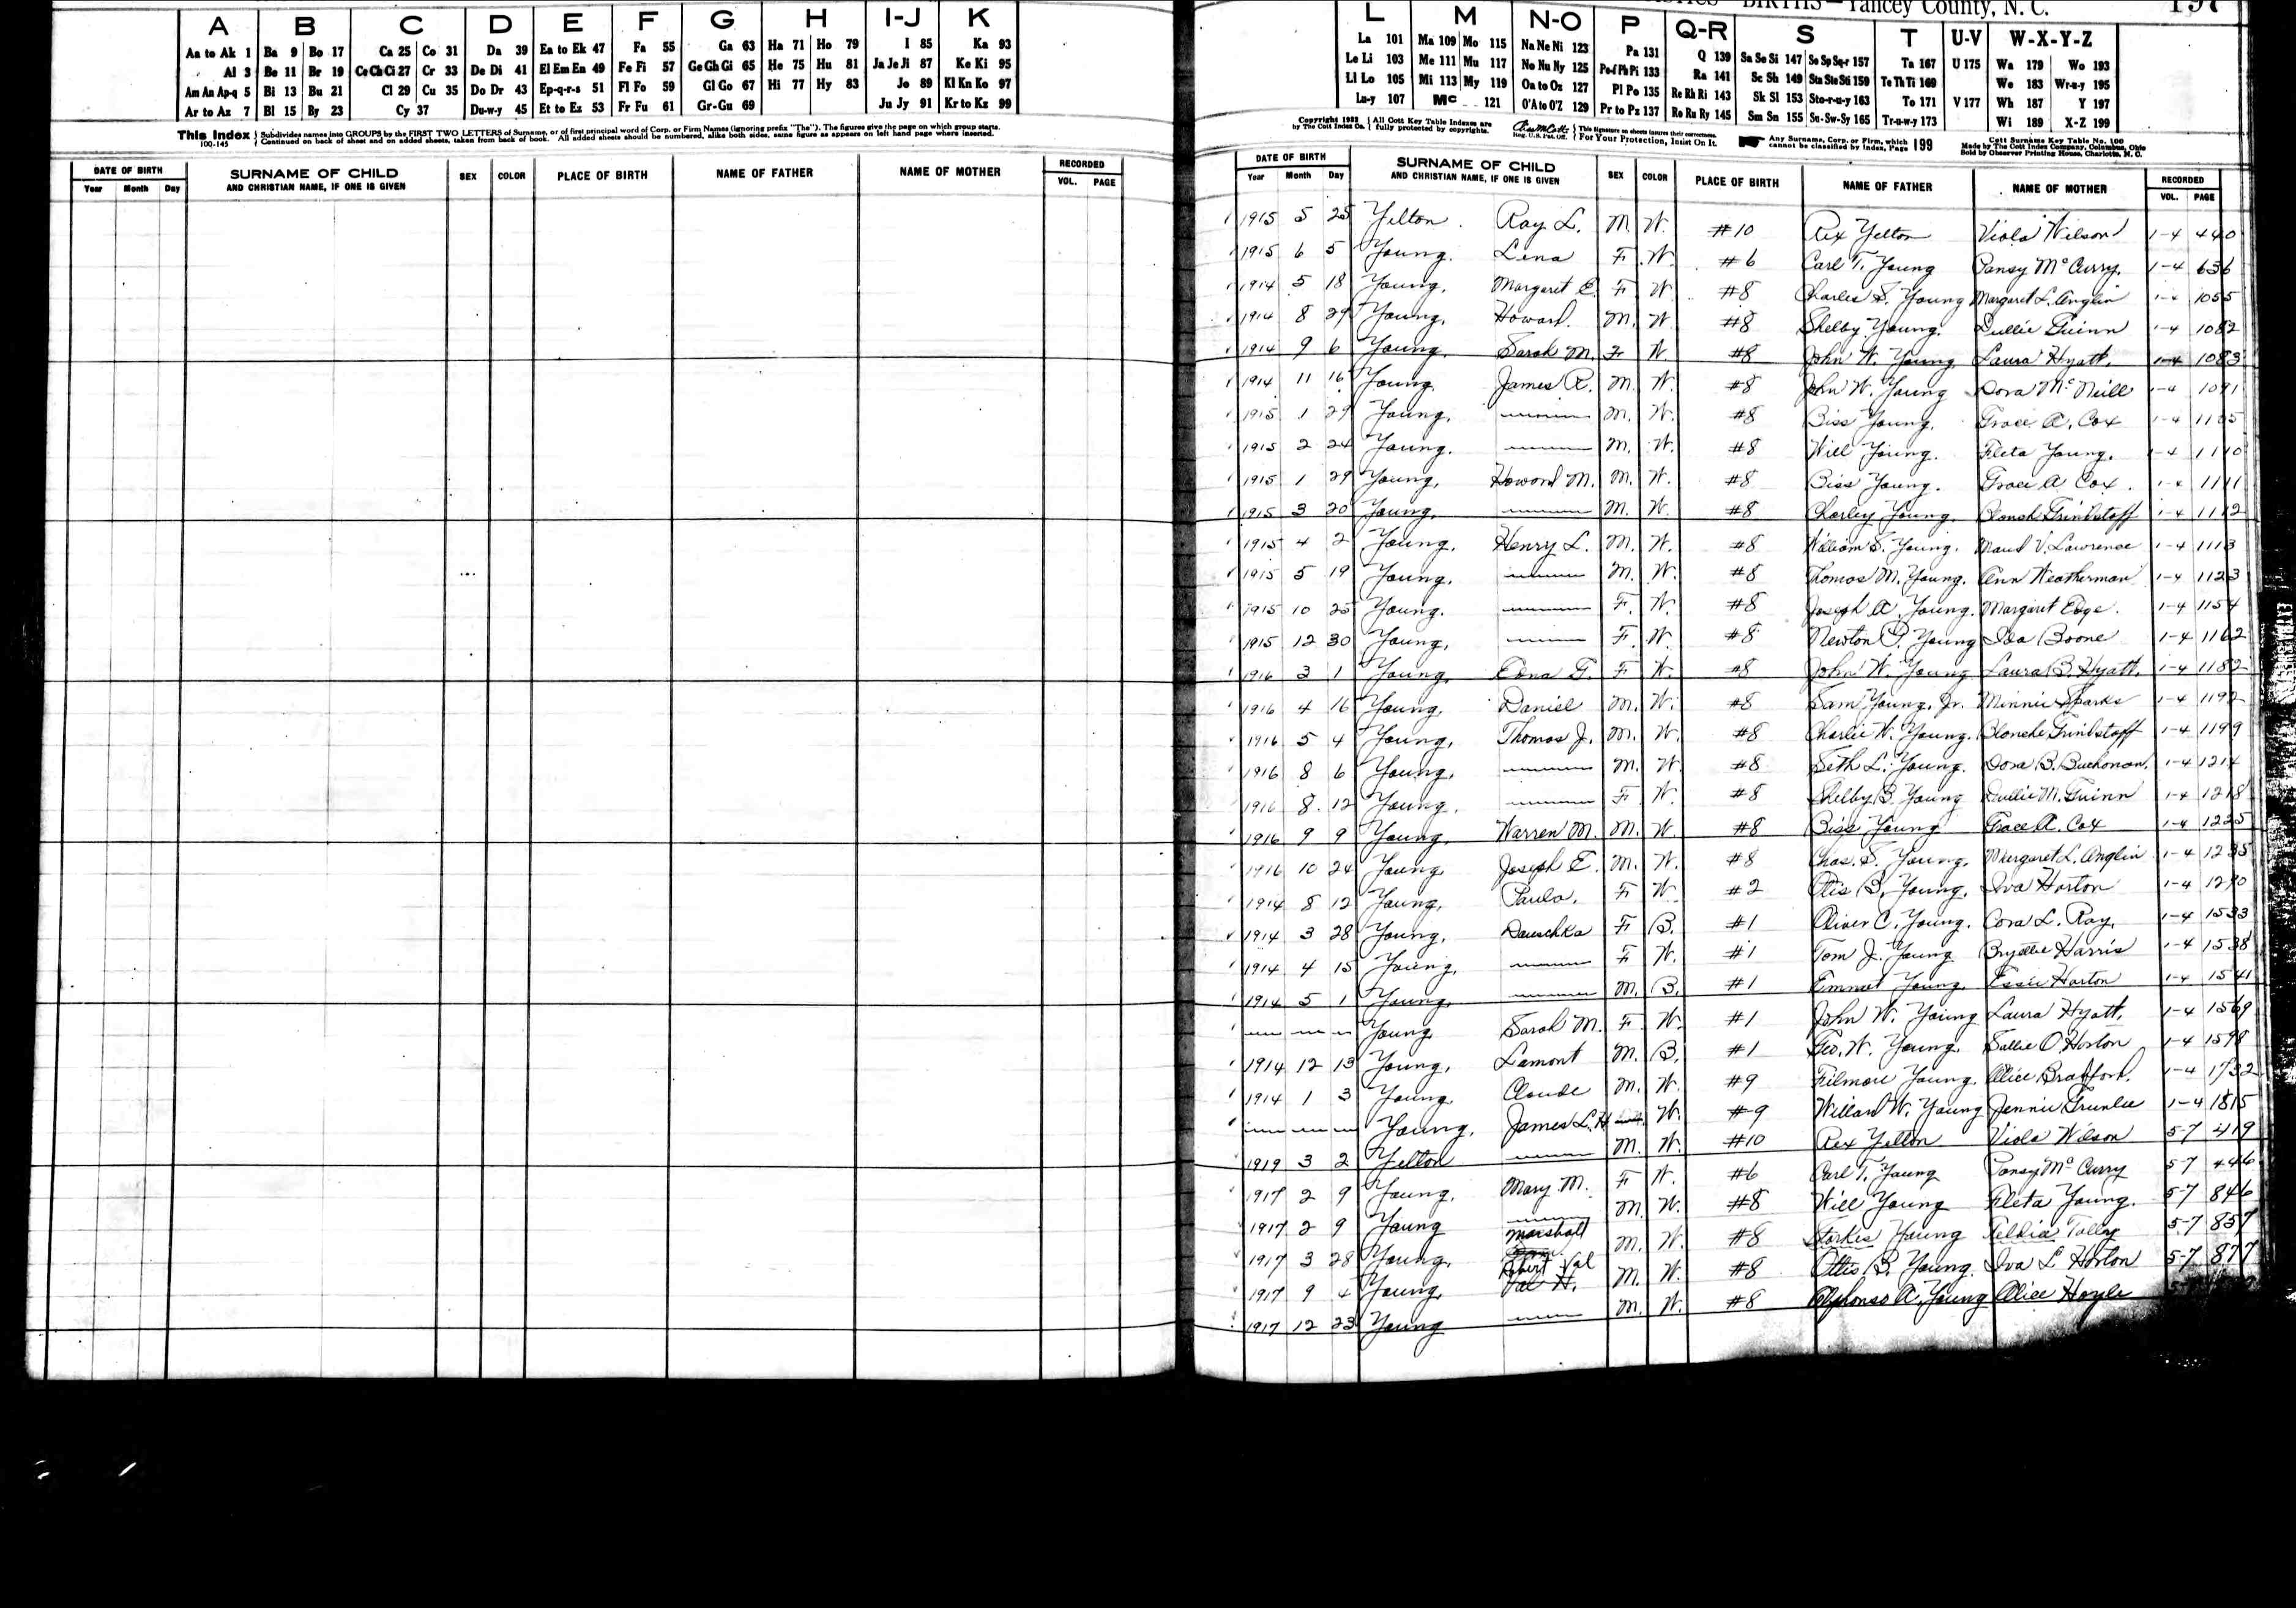 A B C D E F G H I-J K
Aa to Ak 1 Ba 9 Bo 17 Ca 25 Co 31 Da 39 Ea to Ek 47 Fa 55 Ga 63 Ha 71 Ho 79 I 85 Ka 93
Al 3 Be 11 Br 19 Ce Ch Ci 27 Cr 33 De Di 41 El Em En 49 Fe Fi 57 Ge Gh Gi 65 He 75 Hu 81 Ja Je Ji 87 Ke Ki 95
Am An Ap-q 5 Bi 13 Bu 21 Cl 29 Cu 35 Do Dr 43 Ep-q-r-s 51 Fl Fo 59 Gl Go 67 Hi 77 Hy 83 Jo 89 Kl Kn Ko 97
Ar to Az 7 Bl 15 By 23 Cy 37 Du-w-y 45 Et to Ez 53 Fr Fu 61 Gr-Gu 69 Ju Jy 91 Kr to Kz 99
This Index 100-145 Subdivides names into GROUPS by the FIRST TWO LETTERS of Surname, or of first principal word of Corp. or Firm Names (ignoring prefix "The"). The figures give the page on which group starts.
Continued on back of sheet and on added sheets, taken from back of book. All added sheets should be numbered, alike both sides, same figure as appears on left hand page where inserted.
DATE OF BIRTH SURNAME OF CHILD AND CHRISTIAN NAME, IF ONE IS GIVEN SEX COLOR PLACE OF BIRTH NAME OF FATHER NAME OF MOTHER RECORDED
Year Month Day VOL. PAGE
BIRTHS—Yancey County, N. C. 197
L M N-O P Q-R S T U-V W-X-Y-Z
La 101 Ma 109 Mo 115 Na Ne Ni 123 Pa 131 Q 139 Sa Se Si 147 So Sp Sq-r 157 Ta 167 U 175 Wa 179 Wo 193
Le Li 103 Me 111 Mu 117 No Nu Ny 125 Pe-f Ph Pi 133 Ra 141 Sc Sh 149 Sta Ste Sti 159 Te Th Ti 169 We 183 Wr-u-y 195
Ll Lo 105 Mi 113 My 119 Oa to Oz 127 Pl Po 135 Re Rh Ri 143 Sk Sl 153 Sto-r-u-y 163 To 171 V 177 Wh 187 Y 197
Lu-y 107 Mc 121 O'A to O'Z 129 Pr to Pz 137 Ro Ru Ry 145 Sm Sn 155 Su-Sw-Sy 165 Tr-u-w-y 173 Wi 189 X-Z 199
Copyright 1932 by The Cott Index Co. All Cott Key Table Indexes are fully protected by copyrights. Reg. U.S. Pat. Off. This signature on sheets insures their correctness. For Your Protection, Insist On It. Any Surname, Corp. or Firm, which cannot be classified by Index, Page 199 Cott Surname Key Table No. 100
Made by The Cott Index Company, Columbus, Ohio
Sold by Observer Printing House, Charlotte, N. C.
DATE OF BIRTH SURNAME OF CHILD AND CHRISTIAN NAME, IF ONE IS GIVEN SEX COLOR PLACE OF BIRTH NAME OF FATHER NAME OF MOTHER RECORDED
Year Month Day VOL. PAGE
1915 5 25 Yelton. Ray L. M. W. #10 Rex Yelton Viola Wilson 1-4 440
1915 6 5 Young. Lena F. W. #6 Carl T. Young Pansy McCurry. 1-4 636
1914 5 18 Young, Margaret E. F W. #8 Charles S. Young Margaret L. Anglin 1-4 1055
1914 8 29 Young, Howard. M. W #8 Shelby Young. Dullie Guinn 1-4 1082
1914 9 6 Young, Sarah M. F W. #8 John W. Young Laura Hyatt. 1-4 1083
1914 11 16 Young James R. M. W. #8 John W. Young Dora McNeill 1-4 1091
1915 1 29 Young, M. W. #8 Biss Young. Grace A. Cox 1-4 1105
1915 2 24 Young. M. W. #8 Will Young. Fleta Young. 1-4 1110
1915 1 29 Young, Howard M. M. W. #8 Biss Young. Grace A Cox. 1-4 1111
1915 3 20 Young, M. W. #8 Charley Young. Blansh Grindstaff 1-4 1112
1915 4 2 Young, Henry L. M. W. #8 William S. Young. Maud V. Lawrence 1-4 1113
1915 5 19 Young, M. W. #8 Thomas M. Young. Ann Weatherman 1-4 1123
1915 10 25 Young. F. W. #8 Joseph A. Young. Margaret Edge. 1-4 1154
1915 12 30 Young, F. W. #8 Newton P. Young Ida Boone 1-4 1162
1916 3 1 Young, Edna G. F W. #8 John W. Young Laura B. Hyatt. 1-4 1182
1916 4 16 Young, Daniel M. W. #8 Sam Young, Jr. Minnie Sparks 1-4 1192
1916 5 4 Young, Thomas J. M. W. #8 Charlie W. Young. Blanche Grindstaff 1-4 1199
1916 8 6 Young, M. W. #8 Seth L. Young. Dora B. Buchanan. 1-4 1214
1916 8 12 Young, F W. #8 Shelby B. Young Dullie M. Guinn 1-4 1218
1916 9 9 Young, Warren M. M. W. #8 Biss Young Grace A. Cox 1-4 1225
1916 10 24 Young Joseph E. M. W. #8 Chas. S. Young, Margaret L. Anglin 1-4 1235
1914 8 12 Young, Paula. F W. #2 Otis B. Young. Iva Horton 1-4 1290
1914 3 28 Young, Dauschka F B. #1 Oliver C. Young. Cora L. Ray. 1-4 1533
1914 4 15 Young, F W. #1 Tom J. Young Harris 1-4 1538
1914 5 1 Young, M. B. #1 Emmet Young. Essie Horton 1-4 1541
Young Sarah M. F. W. #1 John W. Young Laura Hyatt. 1-4 1569
1914 12 13 Young, Lamont M. B. #1 Geo. W. Young. Sallie O Horton 1-4 1598
1914 1 3 Young, Claude M. W. #9 Filmore Young. Alice Bradford. 1-4 1732
Young, James L. H W. #9 Willard W. Young Jennie Grunlee 1-4 1815
1919 3 2 Yelton M. W. #10 Rex Yelton Viola Wilson 5-7 419
1917 2 9 Young, Mary M. F W. #6 Carl T. Young Pansy McCurry 5-7 446
1917 2 9 Young M. W. #8 Will Young Fleta Young. 5-7 846
1917 3 28 Young, Marshall M. W. #8 Storkes Young Tally 5-7 857
1917 9 4 Young, Robert Val Val H. M. W. #8 Ottis B. Young. Iva L Horton 5-7 877
1917 12 23 Young M. W. #8 Alphonso A. Young Alice Hoyle